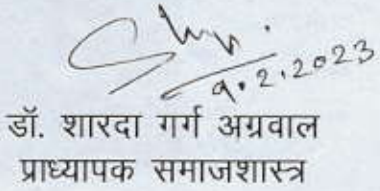 9.2.2023
डॉ. शारदा गर्ग अग्रवाल
प्राध्यापक समाजशास्त्र